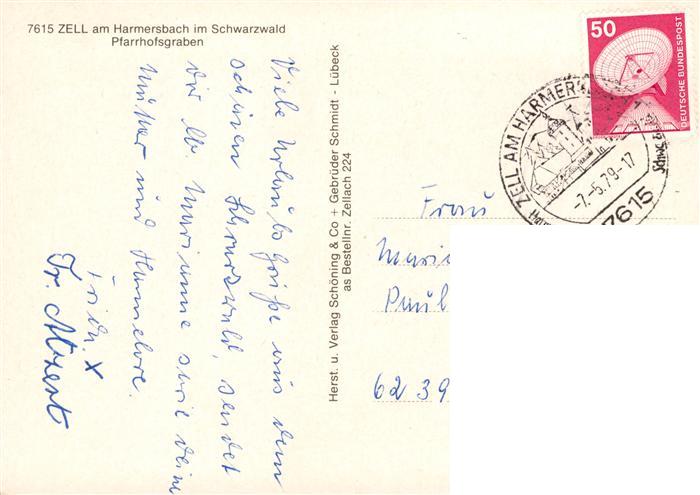 7615 ZELL am Harmersbach im Schwarzwald
Pfarrhofsgraben
Viele Urlaubsgrüße aus dem
schönen Schwarzwald, sendet
dir lb. Marianne sowie deine
Mutter und Hannelore.
Frdr. X
Herst. u. Verlag Schöning & Co + Gebrüder Schmidt - Lübeck
as Bestellnr. Zellach 224
50
DEUTSCHE BUNDESPOST
ZELL AM HARMERS
-7.-5.79-17
7615
Frau
Mari
Paul
6239